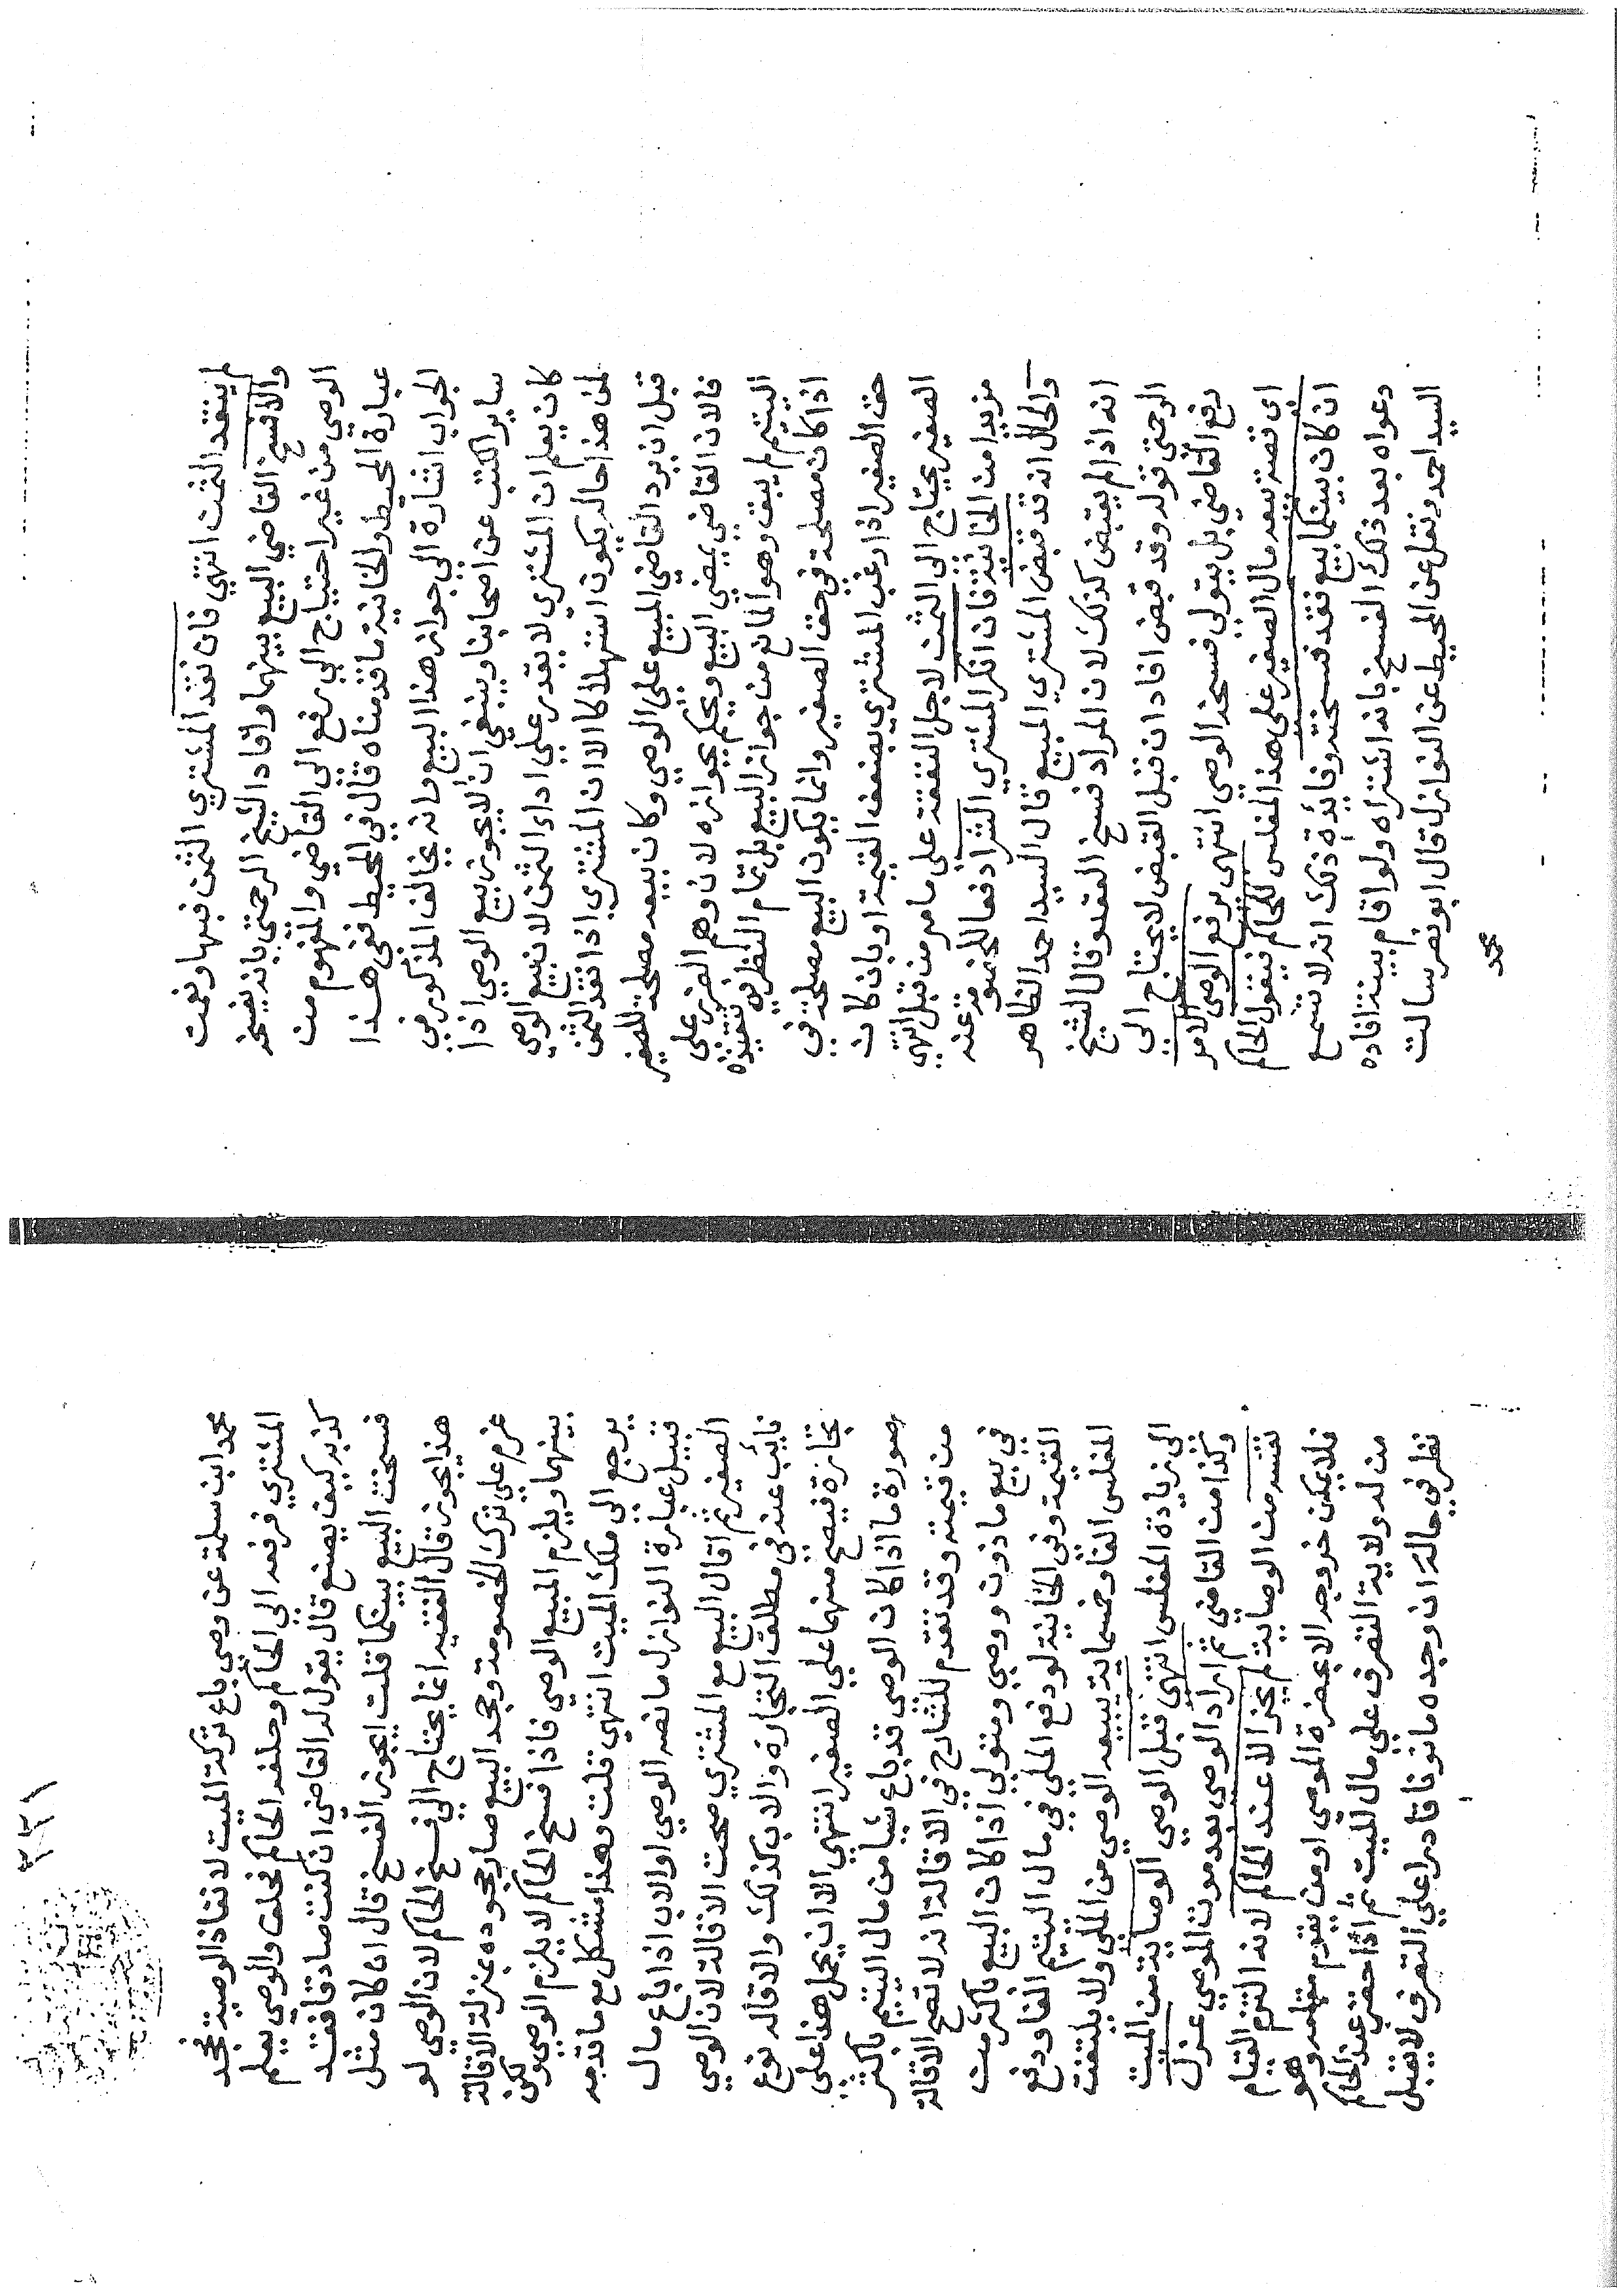 لم ينقد الثمن انتهى فان نقد المشتري الثمن فبها ونعمت
والا فسخ القاضي البيع بينهما وافاد الشيخ الرحمتي بانه يفسخه
الوصي من غير احتياج الي رفع الي القاضي والمفهوم من
عبارة المحيط والخانية ما قدمناه قال في المحيط ففي هذا
الجواب اشارة الي جواز هذا البيع وانه يخالف المذكور في
ساير الكتب عن اصحابنا وينبغي ان لا يجوز بيع الوصي اذا
كان يعلم ان المشتري لا يقدر علي اداء الثمن لان بيع الوصي
لمن هذا حاله يكون استهلاكا الا ان المشتري اذا نقد الثمن
قبل ان يرد القاضي المبيع علي الوصي وكان بيعه مصلحة للصغير
فالان القاضي يمضي البيع ويحكم بجوازه لان وهم الضرر علي
اليتيم لم يبق وهو المانع من جواز البيع بل تمام النظر في تنفيذه
اذا كان مصلحة في حق الصغير وانما يكون البيع مصلحة في
حق الصغير اذا رغب المشتري بضعف القيمة او بان كان
الصغير يحتاج الى الثمن لاجل النفقة علي ما مر من قبل انتهي
مزيدا من الخانية فان انكر المشتري الشرا دفعا للخصومة عنه
والحال انه قد قبض المشتري المبيع قال السيد احمد الظاهر
انه اذا لم يقبض كذلك لان المراد فسخ العقد وقال الشيخ
الرحمتي قوله وقد قبض افاد ان قبل القبض لا يحتاج الى
رفع القاضي بل يتولى فسخه الوصي انتهى يرفع الوصي الامر
اى قصة بيعه مال الصغير على هذا المفلس للحاكم فيقول الحاكم
ان كان بينكما بيع فقد فسخته وفايدة ذلك انه لا تسمع
دعواه بعد ذلك الفسخ بانه اشتراه ولو اقام بينة افاده
السيد احمد ونقل عن المحيط عن النوازل قال ابو نصر سالت
محمد
محمد ابن سلمة عن وصي باع تركة الميت لانفاذ الوصية فجحد
المشتري فرفعه الي الحاكم وحلفه الحاكم فحلف والوصي يعلم
كذبه كيف يصنع قال يقول له القاضي ان كنت صادقا فقد
فسخت البيع بينكما قلت ايجوز الفسخ قال ان كان مثل
هذا يجوز قال الفقيه انما يحتاج الي فسخ الحاكم لان الوصي لو
عزم علي ترك الخصومة وجحد البيع صار جحوده بمنزلة الاقالة
بينهما ويلزم المبيع الوصي فاذا فسخ الحاكم لا يلزم الوصي ولكن
يرجع الى ملك الميت انتهي قلت وهذا مشكل مع ما قدمه
قبيل عبارة النوازل ما نصه الوصي او الاب اذا باع مال
الصغير ثم اقال البيع مع المشتري صحت الاقالة لان الوصي
نايب عنه في مطلق التجارة والاب كذلك والاقالة نوع
تجارة فيصح منهما علي الصغير انتهي الا ان يحمل هذا علي
صورة ما اذا كان الوصي قد باع شيا من مال اليتيم باكثر
من قيمته وقد تقدم للشارح في الاقالة انه لا تصح الاقالة
في بيع ماذون ووصي ومتولي اذا كان البيع باكثر من
القيمة وفي الخانية لو دفع الملي في مال اليتيم الفا ودفع
المفلس الفا وخمسماية يبيعه الوصي من الملي ولا يلتفت
الى زيادة المفلس انتهى قبل الوصي الوصاية من الميت
وكذا من القاضي ثم اراد الوصي بعد موت الموصي عزل
نفسه من الوصاية لم يجز الا عند الحاكم لانه التزم القيام
فلا يمكن خروجه الا بحضرة الموصي او من يقوم مقامه وهو
من له ولاية التصرف علي مال الميت ثم اذا حضر عند الحاكم
نظر في حاله ان وجده مأنوفا قادرا علي التصرف لا يقبل